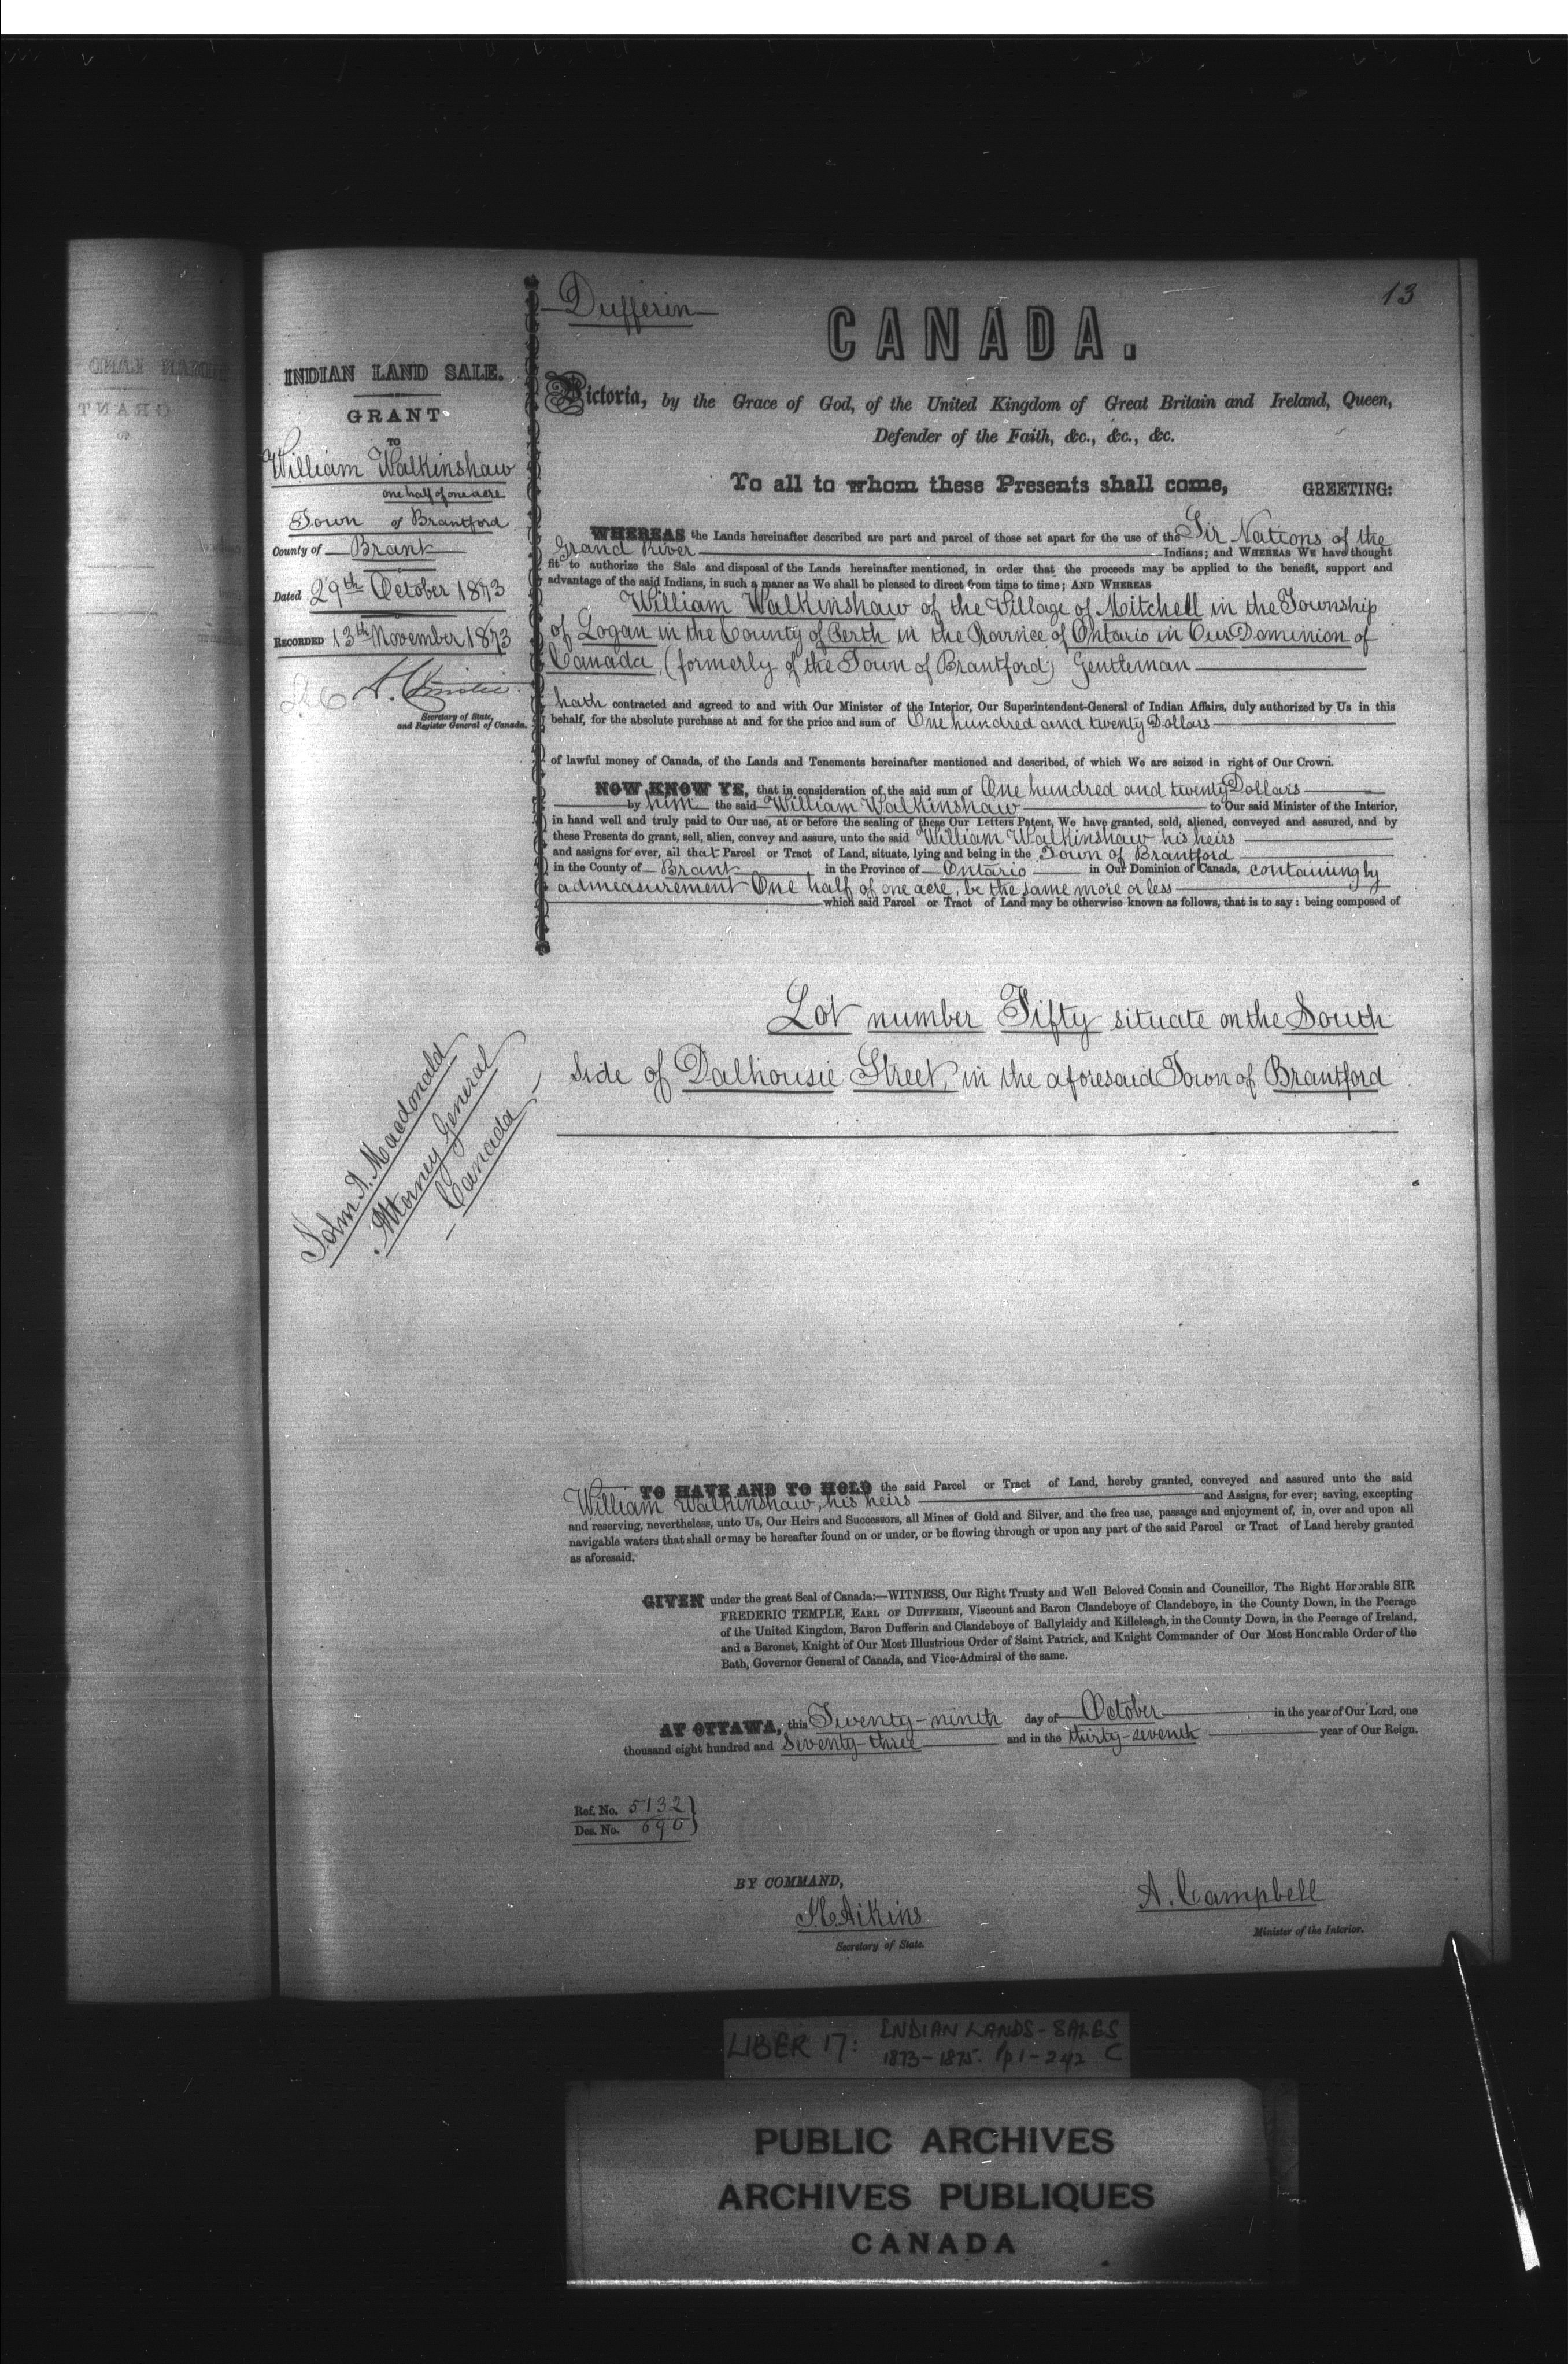 13
Dufferin
CANADA.
INDIAN LAND SALE.
GRANT
TO
William Walkinshaw
one half of one acre
Town of Brantford
County of Brant
Dated 29th October 1873
RECORDED 13th November 1873
Secretary of State,
and Register General of Canada.
Victoria, by the Grace of God, of the United Kingdom of Great Britain and Ireland, Queen,
Defender of the Faith, &c., &c., &c.
To all to whom these Presents shall come, GREETING:
WHEREAS the Lands hereinafter described are part and parcel of those set apart for the use of the Six Nations of the
Grand River Indians; and WHEREAS WE have thought
fit to authorize the Sale and disposal of the Lands hereinafter mentioned, in order that the proceeds may be applied to the benefit, support and
advantage of the said Indians, in such a maner as We shall be pleased to direct from time to time; AND WHEREAS
William Walkinshaw of the Village of Mitchell in the Township
of Logan in the County of Perth in the Province of Ontario in Our Dominion of
Canada, (formerly of the Town of Brantford) Gentleman
hath contracted and agreed to and with Our Minister of the Interior, Our Superintendent-General of Indian Affairs, duly authorized by Us in this
behalf, for the absolute purchase at and for the price and sum of One hundred and twenty Dollars
of lawful money of Canada, of the Lands and Tenements hereinafter mentioned and described, of which We are seized in right of Our Crown.
NOW KNOW YE, that in consideration of the said sum of One hundred and twenty Dollars
by him the said William Walkinshaw to Our said Minister of the Interior,
in hand well and truly paid to Our use, at or before the sealing of these Our Letters Patent, We have granted, sold, aliened, conveyed and assured, and by
these Presents do grant, sell, alien, convey and assure, unto the said William Walkinshaw his heirs
and assigns for ever, all that Parcel or Tract of Land, situate, lying and being in the Town of Brantford
in the County of Brant in the Province of Ontario in Our Dominion of Canada, containing by
admeasurement One half of one acre, be the same more or less
which said Parcel or Tract of Land may be otherwise known as follows, that is to say: being composed of
Lot number Fifty situate on the South
Side of Dalhousie Street, in the aforesaid Town of Brantford
John A. Macdonald
Attorney General
Canada
TO HAVE AND TO HOLD the said Parcel or Tract of Land, hereby granted, conveyed and assured unto the said
William Walkinshaw, his heirs and Assigns, for ever; saving, excepting
and reserving, nevertheless, unto Us, Our Heirs and Successors, all Mines of Gold and Silver, and the free use, passage and enjoyment of, in, over and upon all
navigable waters that shall or may be hereafter found on or under, or be flowing through or upon any part of the said Parcel or Tract of Land hereby granted
as aforesaid.
GIVEN under the great Seal of Canada:—WITNESS, Our Right Trusty and Well Beloved Cousin and Councillor, The Right Honorable SIR
FREDERIC TEMPLE, EARL OF DUFFERIN, Viscount and Baron Clandeboye of Clandeboye, in the County Down, in the Peerage
of the United Kingdom, Baron Dufferin and Clandeboye of Ballyleidy and Killeleagh, in the County Down, in the Peerage of Ireland,
and a Baronet, Knight of Our Most Illustrious Order of Saint Patrick, and Knight Commander of Our Most Honorable Order of the
Bath, Governor General of Canada, and Vice-Admiral of the same.
AT OTTAWA, this Twenty-ninth day of October in the year of Our Lord, one
thousand eight hundred and Seventy-three and in the thirty-seventh year of Our Reign.
Ref. No. 5132
Des. No. 690
BY COMMAND,
J.C. Aikins
Secretary of State.
A. Campbell
Minister of the Interior.
LIBER 17: INDIAN LANDS - SALES
1873-1875. pp 1-242 C
PUBLIC ARCHIVES
ARCHIVES PUBLIQUES
CANADA